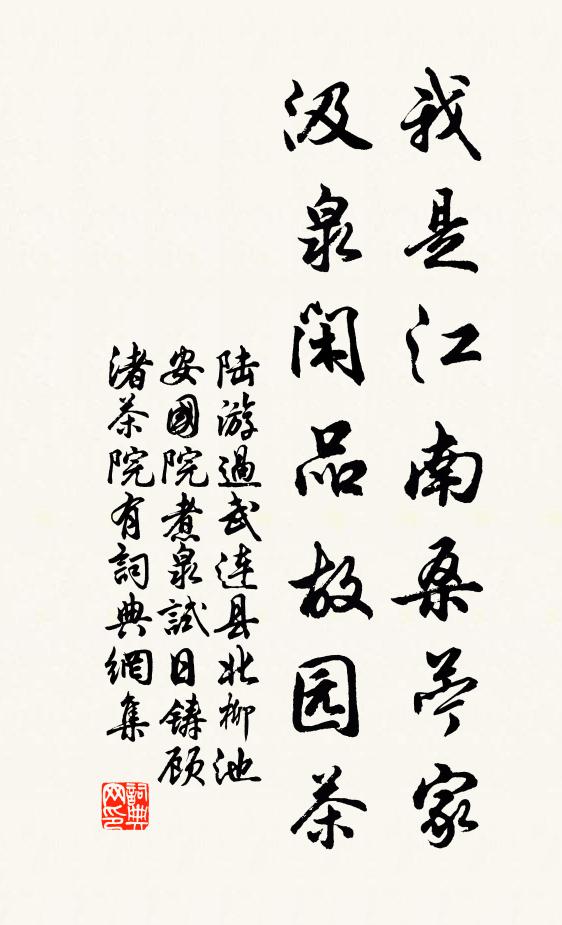 我是江南桑苎家
汲泉闲品故园茶
陆游過武連县北柳池
安國院煮泉試日鑄顾
渚茶院有詞典網集
詞典网印